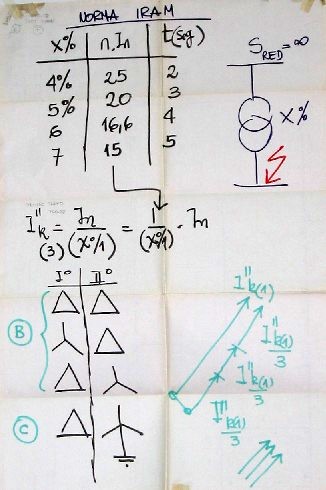 NORMA IRAM
X% n.In t(sg)
4% 25 2
5% 20 3
6 16,6 4
7 15 5
S RED = ∞
X%
I"k (3) = In / (X%/1) = 1 / (X%/1) . In
I° II°
B
C
I"k(1)
I"k(1) / 3
I"k(1) / 3
I"k(1) / 3